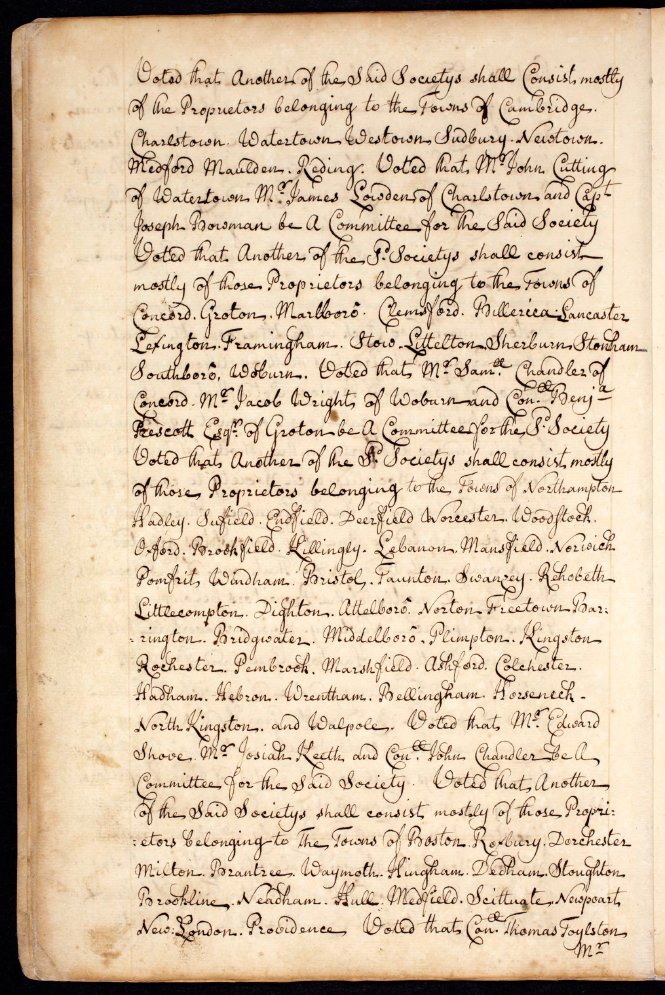 Voted that Another of the Said Societys shall Consist mostly
of the Proprietors belonging to the Towns of Cambridge.
Charlstown. Watertown Westown Sudbury. Newtown.
Medford Maulden. Reding. Voted that Mr John Cutting
of Watertown Mr James Lowden of Charlstown and Capt
Joseph Bowman be A Committee for the Said Society
Voted that Another of the Sd Societys shall consist
mostly of those Proprietors belonging to the Towns of
Concord. Groton. Marlboro. Clemsford. Billerica. Lancaster
Lexington. Framingham. Stow. Littelton Sherburn Stonham
Southboro, Woburn. Voted that Mr Samll Chandler of
Concord. Mr Jacob Wright of Woburn and Conll Benja
Prescott Esqr of Groton be A Committee for the Sd Society
Voted that Another of the Sd Societys shall consist mostly
of those Proprietors belonging to the Towns of Northampton
Hadley. Suffield. Endfield. Deerfield Worcester. Woodstock.
Oxford. Brookfield. Killingly. Lebanon. Mansfield. Norwich
Pomfrit, Windham. Bristol. Taunton. Swanzey. Rehobeth
Littlecompton. Dighton. Attelboro. Norton Freetown Bar-
-:rington. Bridgwater. Middelboro. Plimpton. Kingston
Rochester. Pembrook. Marshfield. Ashford. Colchester.
Hadham. Hebron. Wrentham. Bellingham. Horseneck.
North Kingston. and Walpole. Voted that Mr Edward
Shove. Mr Josiah Keeth and Conll John Chandler be A
Committee for the Said Society. Voted that Another
of the Said Societys shall consist mostly of those Propri-
:etors belonging to The Towns of Boston. Roxbury. Dorchester
Milton. Brantree. Waymoth. Hingham. Dedham. Stoughton
Brookline. Neadham. Hull. Medfield. Scittuate Newpoart
New:London. Providence Voted that Conll Thomas Foylston
Mr